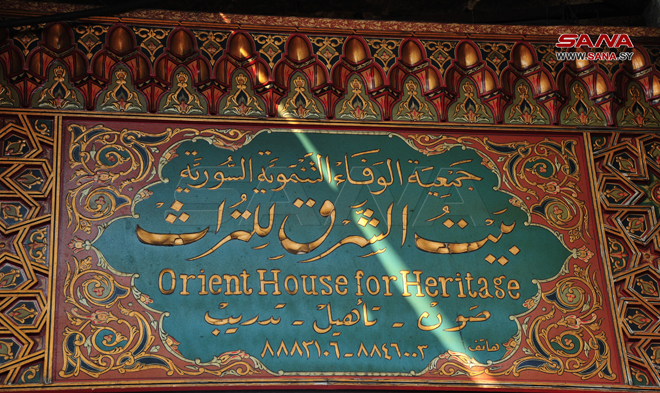 SANA
WWW.SANA.SY
جمعية الوفاء التنموية السورية
بيت الشرق للتراث
Orient House for Heritage
صون - تأهيل - تدريب
هاتف ٨٨٤٦٠٠٣ - ٨٨٨٣١٠٦